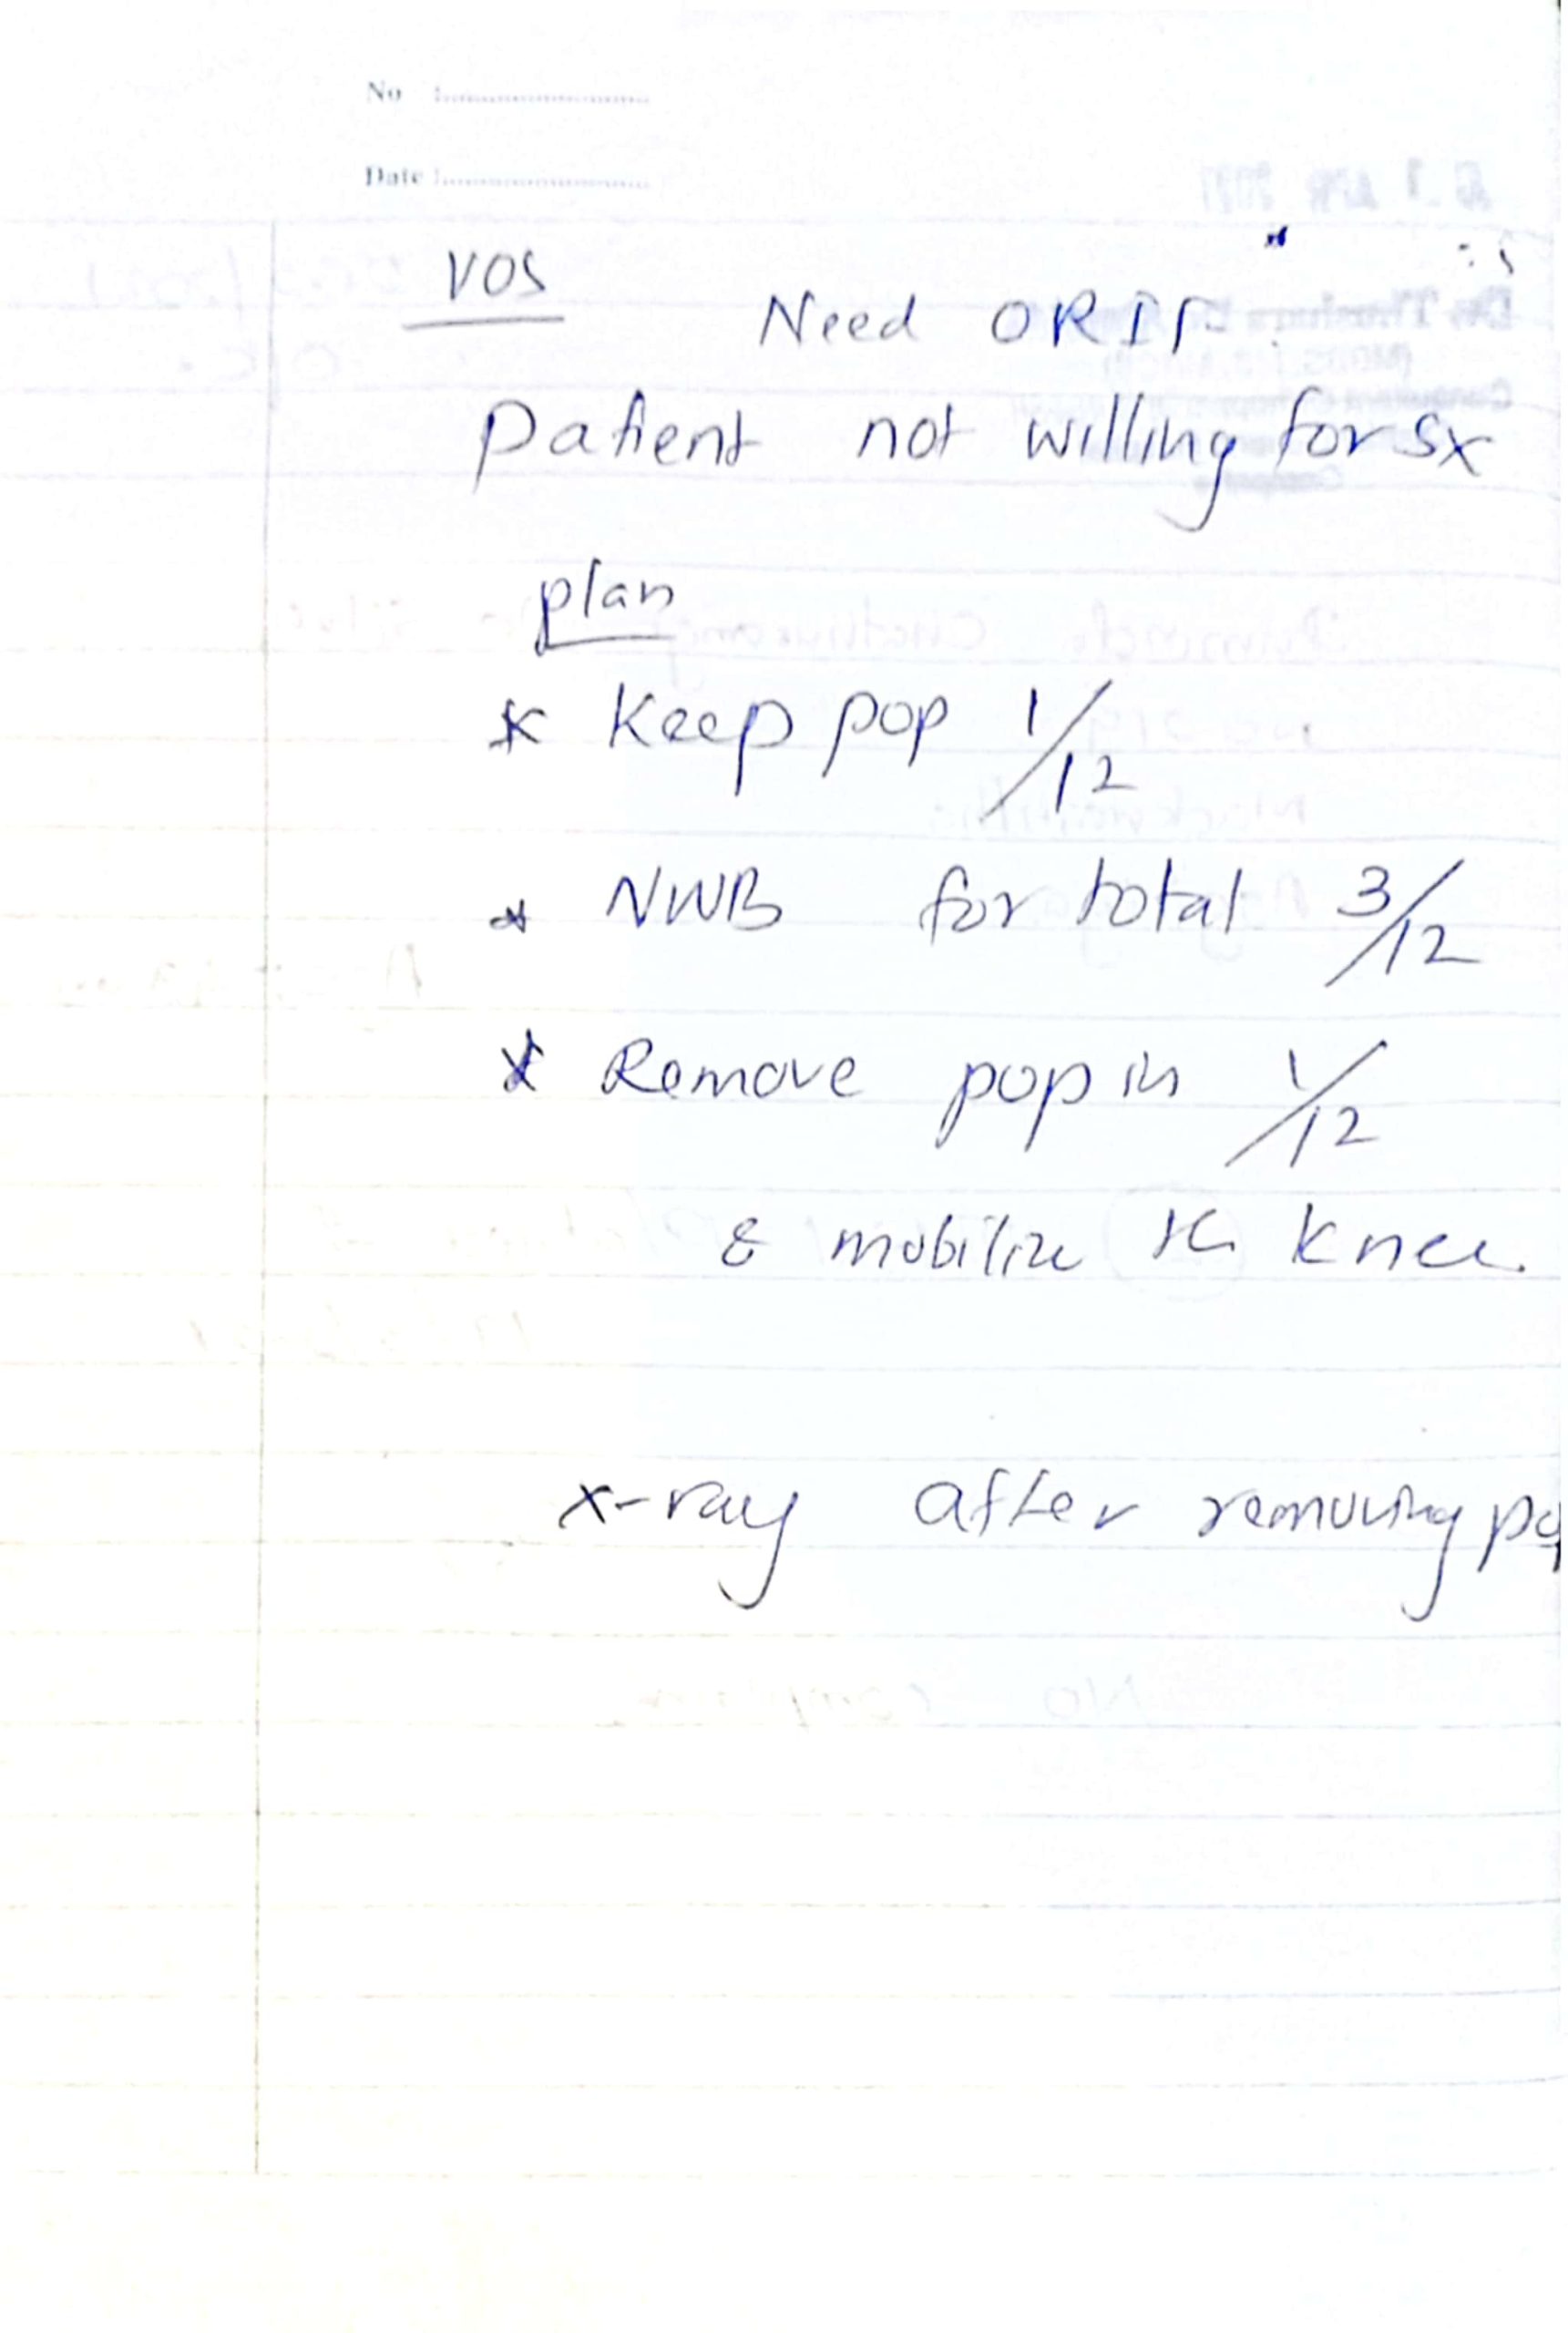 No :........................
Date :........................
VOS
Need ORIF.
patient not willing for sx
plan
* Keep pop 1/12
* NWB for total 3/12
* Remove pop in 1/12
& mobilize the knee.
x-ray after removing po